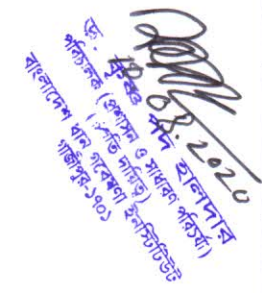 18.03.2020
পদ হালদার
পরিচালক (প্রশাসন ও সাধারণ পরিচর্যা)
(চলতি দায়িত্ব)
বাংলাদেশ ধান গবেষণা ইনস্টিটিউট
গাজীপুর-১৭০১